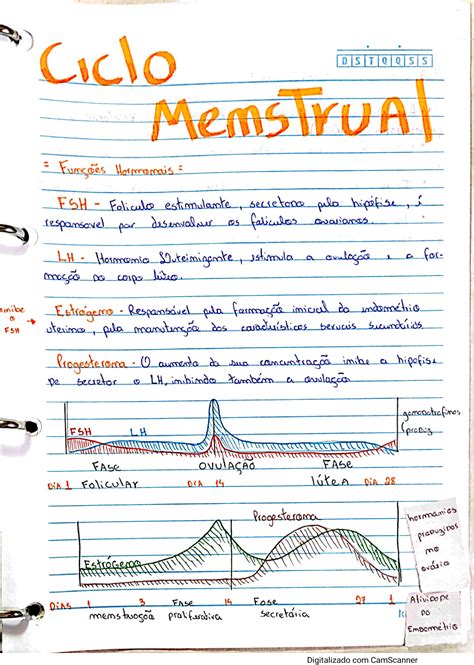 Ciclo
D S T Q Q S S
Memstrual
= Funções Hormomais =
FSH - Foliculo estimulante, secretono pela hipófise, é
responsavel por desenvolver os foliculos ovarianos.
LH - Hormomio Luteimigante, estimula a ovulação e a for-
mação do corpo lúteo.
imibe
o
FSH
Estrógemo - Responsável pela formação inicial do endométrio
uterimo, pela manutenção dos características sexuais secundárias.
Progesteroma - O aumento da sua concentração imibe a hipófise
de secretar o LH, imibindo também a ovulação
FSH
LH
gomadotrofinas
FASE
OVULAÇÃO
FASE
DIA 1
Folicular
DIA 14
lútea
DIA 28
Progesteroma
Estrógemo
hormônios
produzidos
mo
ovário
DIAS 1
3
FASE
14
Fase
27
1
menstruação
proliferativa
secretária
Atividade
do
Endométrio
Digitalizado com CamScanner